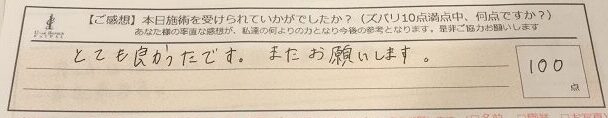 【ご感想】本日施術を受けられていかがでしたか？（ズバリ10点満点中、何点ですか？）
あなた様の率直な感想が、私達の何よりの力となり今後の参考となります。是非ご協力お願いします
とても良かったです。またお願いします。
100
点